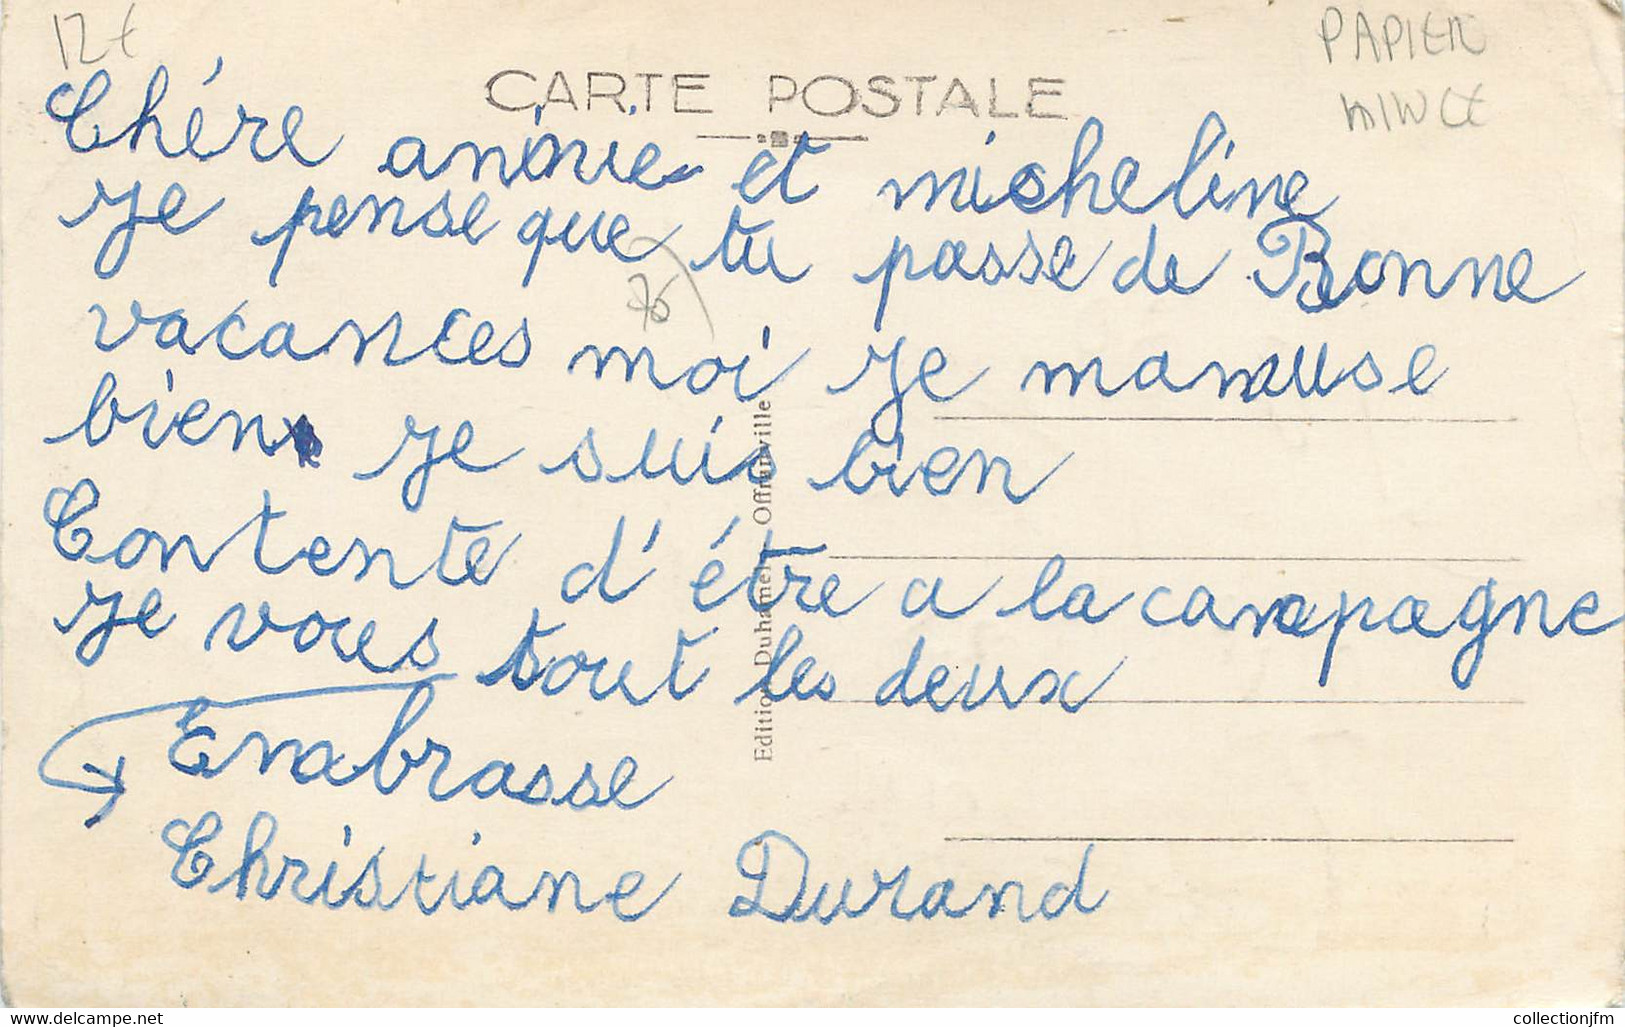 12€
PAPIER
MINCE
CARTE POSTALE
Chére annie et micheline
je pense que tu passe de Bonne
76
vacances moi je mamuse
bien je suis bien
Contente d'étre a la campagne
je vous tout les deux
Embrasse
Christiane Durand
Edition Duhamel, Offranville
www.delcampe.net
collectionjfm